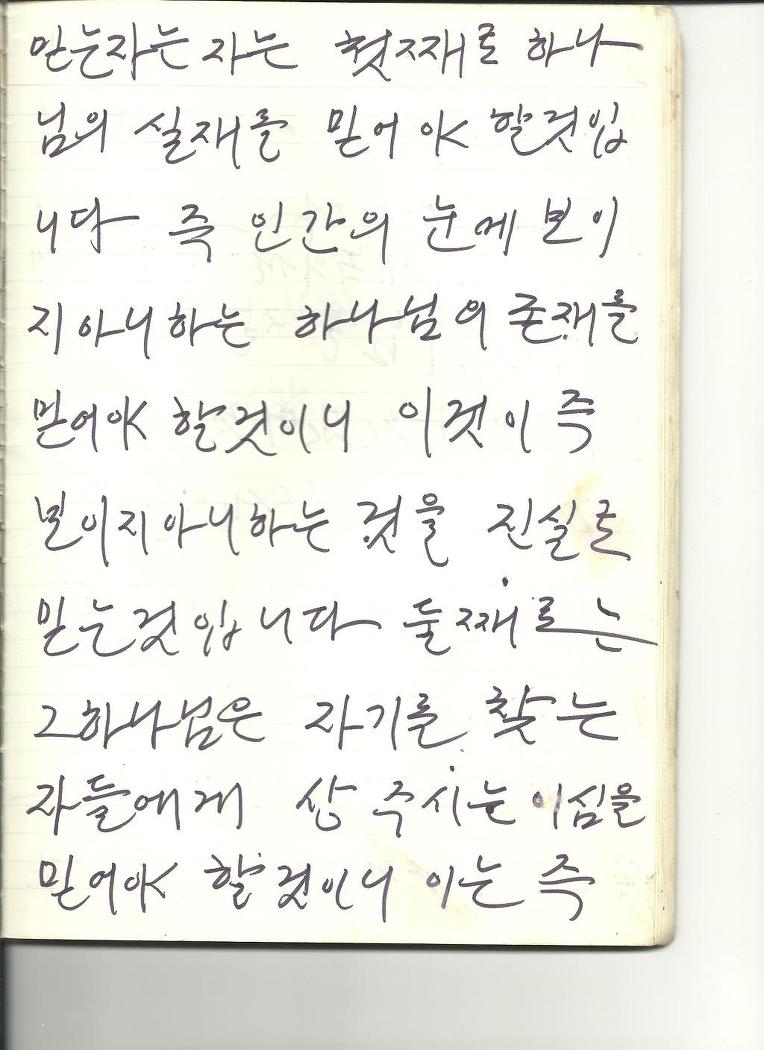 믿는자는 자는 첫째로 하나
님의 실재를 믿어야 할것입
니다 즉 인간의 눈에 보이
지아니하는 하나님의 존재를
믿어야 할것이니 이것이 즉
보이지아니하는 것을 진실로
믿는것입니다 둘째로는
그하나님은 자기를 찾는
자들에게 상 주시는 이심을
믿어야 할것이니 이는 즉